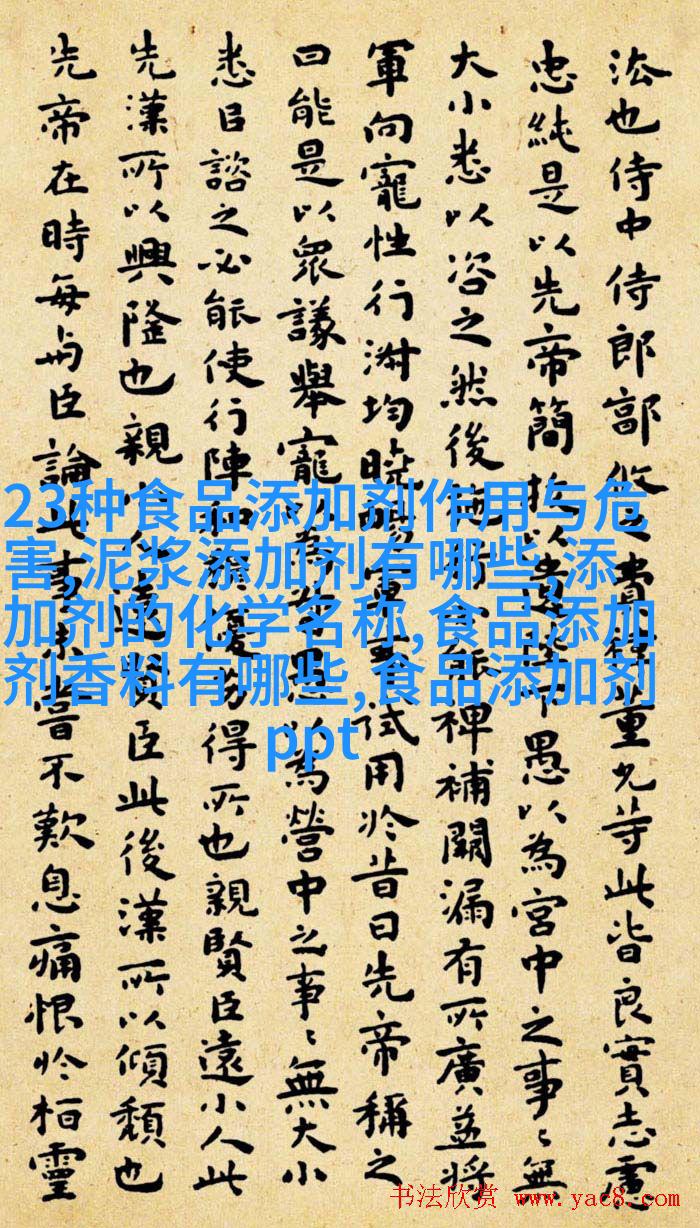 法也侍中侍郎郭攸之費禕董允等此皆良實志慮
忠純是以先帝簡拔以遺陛下愚以為宮中之事〻無
大小悉以咨之然後施行必能裨補闕漏有所廣益將
軍向寵性行淑均曉暢軍事試用於昔日先帝稱之
曰能是以衆議舉寵以為督愚以為營中之事〻無大小
悉㠯諮之必能使行陣和穆優劣得所也親賢臣遠小人此
先漢所以興隆也親小人遠賢臣此後漢所以傾頹也
先帝在時每與臣論此事未嘗不歎息痛恨於桓靈
23种食品添加剂作用与危
害,泥浆添加剂有哪些,添
加剂的化学名称,食品添加
剂香料有哪些,食品添加剂
ppt
书法欣赏 www.yac8.com